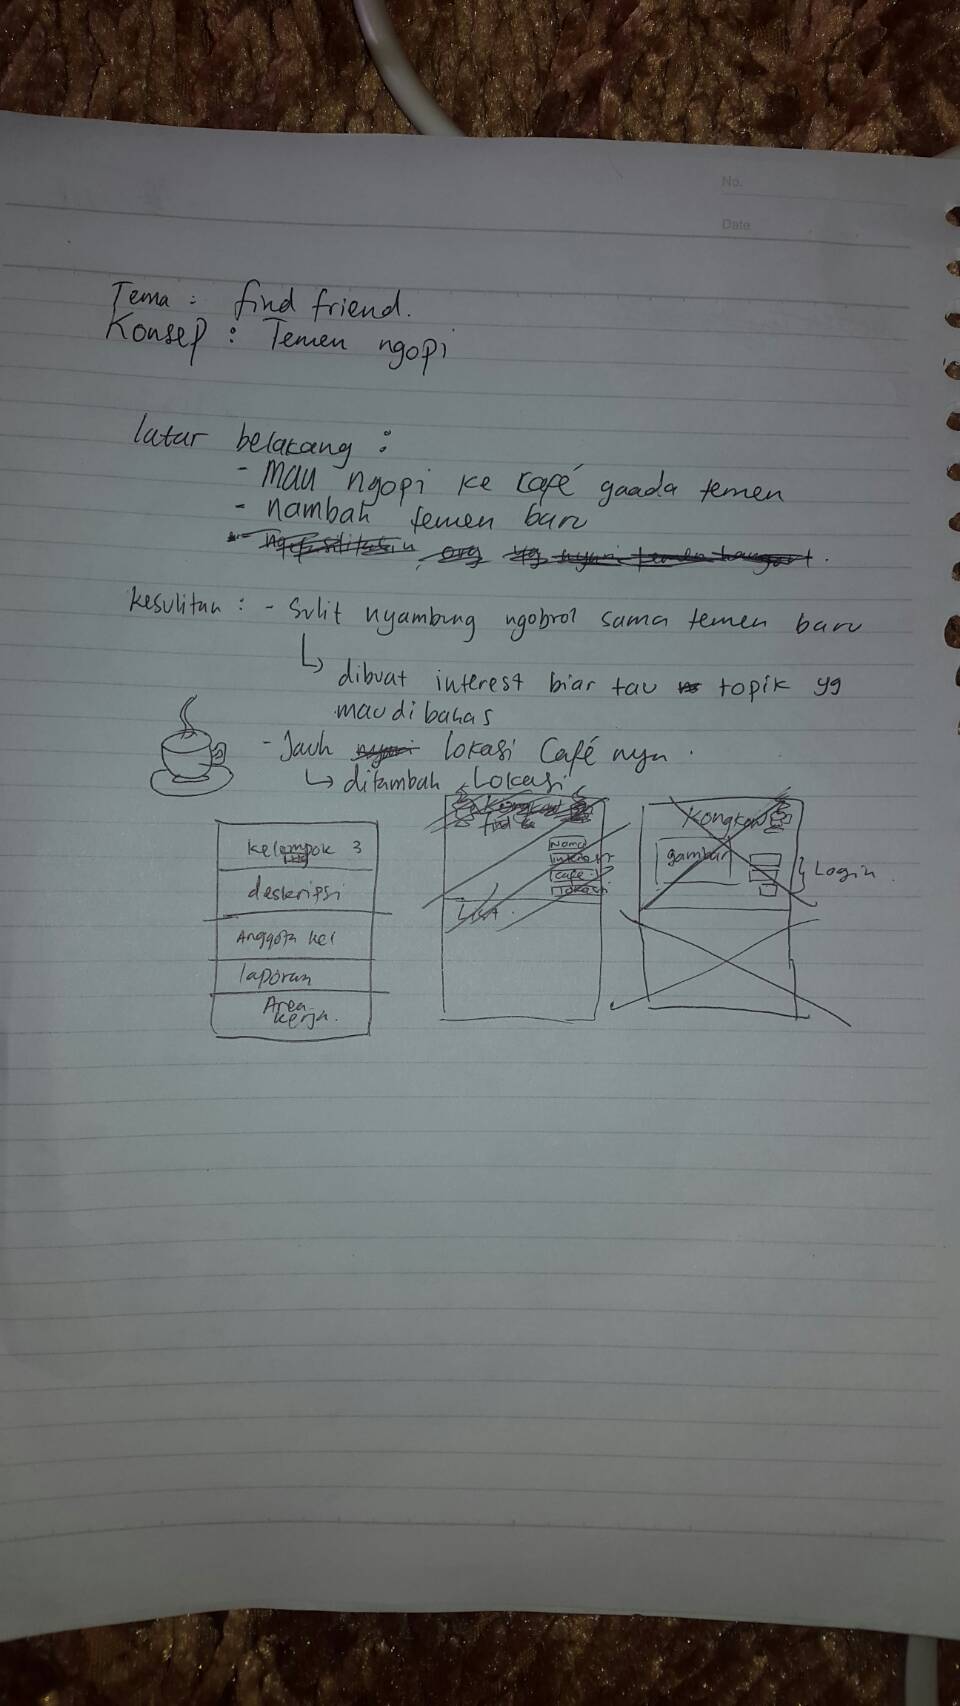 No.
Date
Tema : find friend.
Konsep : Temen ngopi
latar belakang :
- mau ngopi ke café gaada temen
- nambah temen baru
kesulitan : - Sulit nyambung ngobrol sama temen baru
↳ dibuat interest biar tau topik yg
mau dibahas
- Jauh lokasi Café nya.
↳ ditambah Lokasi
kelompok 3
deskripsi
Anggota kel
laporan
Area
kerja.
Kongkow
find
Nama
interest
café
lokasi
List.
Kongkow
gambar
Login.